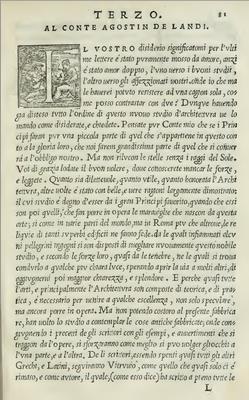 TERZO. 81
AL CONTE AGOSTIN DE LANDI.
IL VOSTRO disiderio significatomi per l'ulti
me lettere è stato puramente mosso da amore, anzi
è stato amor doppio, l'uno verso i buoni studii,
l'altro verso gli affezzionati vostri. onde io che ma
le haverei potuto resistere ad una cagion sola, co
me posso contrastar con due? Dunque havendo
ga disteso tutto l'ordine di questo nuovo studio d'architettura ve lo
mando come disiderate, e chiedete. Pensate per Conto mio che se i Prin
cipi fanno pur una piccola parte di quel che s'appartiene in questo con
to a la gloria loro, che noi faremo grandissima parte di quel che si conver
rà a l'obbligo nostro. Ma non rilucon le stelle senza i raggi del Sole.
Voi di grazia lodate il buon volere, dove conoscerete mancar le forze,
e leggete. Quanto sia dilettevole, quanto utile, quanto honorata l'Archi
tettura, altre volte è stato con belle, e vere ragioni largamente dimostrato:
il cui studio è degno d'esser da i gran Principi favorito, quando che essi
son poi quelli, che fan porre in opera le maraviglie che nascono da questa
arte; si come in varie parti del mondo, ma in Roma pur che altrove, le re
liquie di tanti superbi edificii ne fanno fede. da le quali infiammati alcu
ni pellegrini ingegni si son disposti di misgliare nuovamente questo nobile
studio, e secondo le forze loro, quasi da le tenebre, ne le quali si troua
condurlo a qualche più chiara luce, sperando aprir la via a molti altri, di
aggiungerui poi maggior chiarezza, e splendore. E perche quasi tutte
l'arti, e principalmente l'Architettura son composte di teorica, e di pra
tica, è necessario per venire a qualche eccellenza, non solo speculare,
ma ancora porre in opera. Ma non potendo costoro al presente fabbrica
re, han volto lo studio a contemplar le cose antiche fabbricate; onde con
giugnendo i precetti de gli scrittori con gli esempi, e assottigliando ciò che
traggon da l'opere, si sforzaranno come meglio si può volger gl'occhi a
l'una parte, e a l'altra. De li scrittori, essendo spenti quasi tutti gli altri
Greci, e Latini, seguiranno Vitruvio, come quello che quasi solo ci è
rimaso, e come autore, il quale (come esso dice) ha scritto a pieno tutte le
L